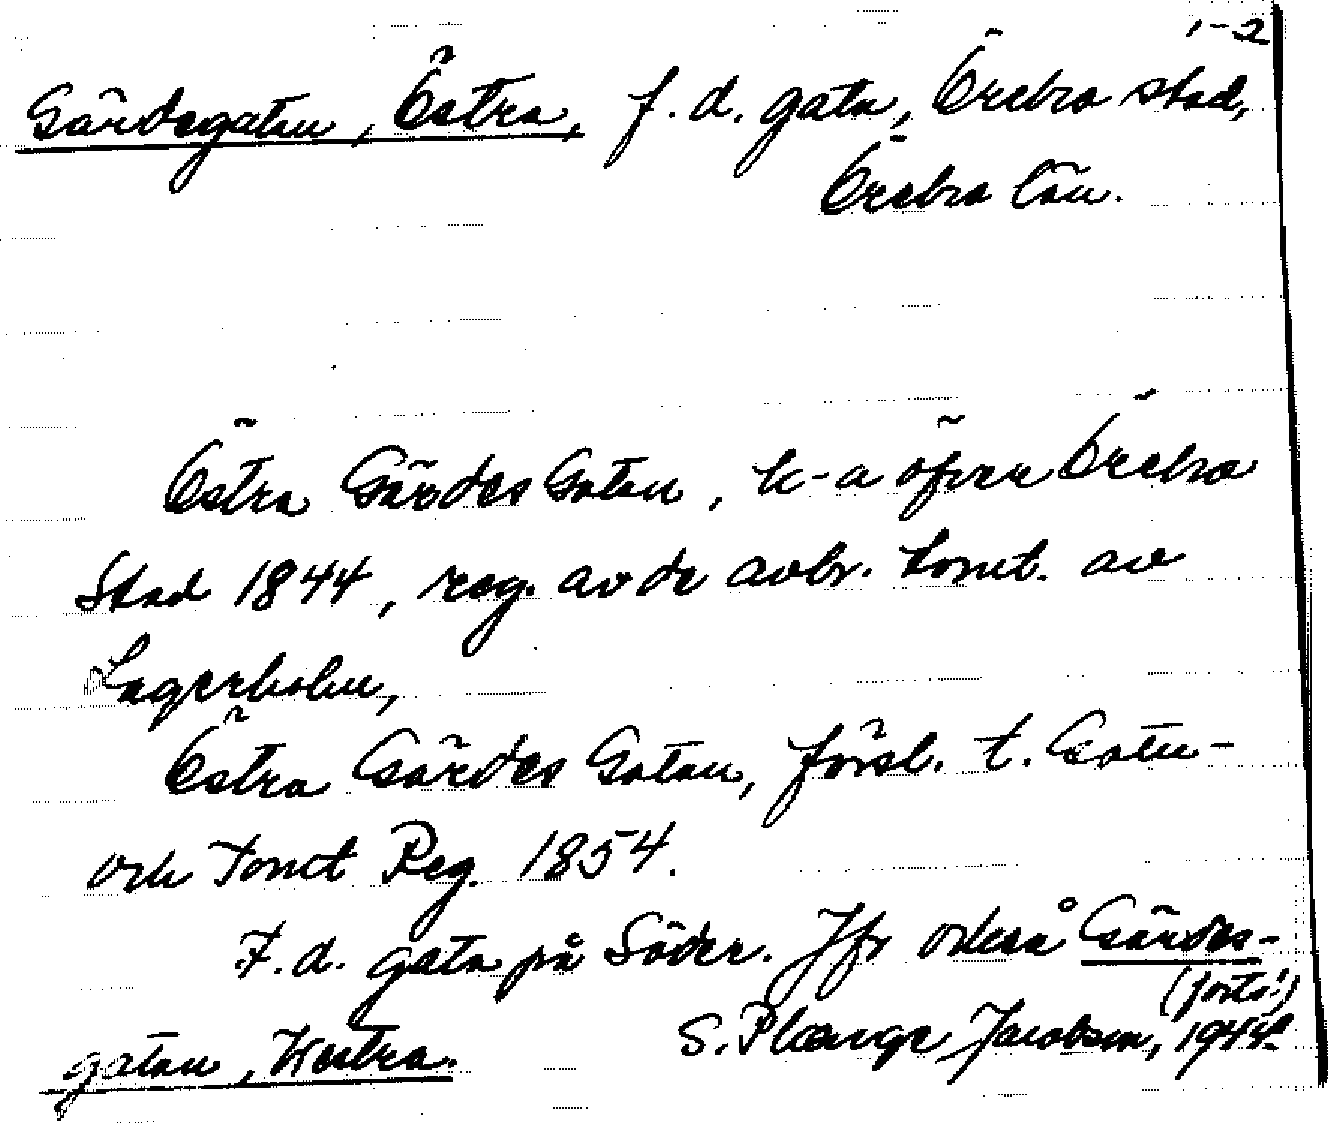 1-2
Gärdsgatan, Östra, f.d. gata, Örebro stad,
Örebro län.
Östra Gärdes Gatan, k-a öfver Örebro
Stad 1844, reg. av de avbr. tomt. av
Lagerholm,
Östra Gärdes Gatan, försl. t. Gatu-
och Tomt Reg. 1854.
F.d. gata på Söder. Jfr också Gärdes-
(forts!)
gatan, Westra. S. Plænge Jacobson, 1944